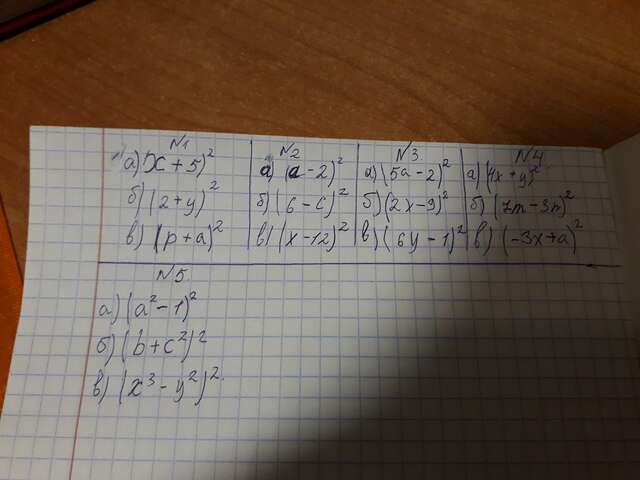 N1
а) (x + 5)²
б) (2+y)²
в) (p + a)²
N2
а) (a - 2)²
б) (6 - c)²
в) (x - 12)²
N3
а) (5a - 2)²
б) (2x - 9)²
в) (6y - 1)²
N4
а) (4x + y)²
б) (7m - 3n)²
в) (-3x+a)²
N5
а) (a² - 1)²
б) (b + c²)²
в) (x³ - y²)²